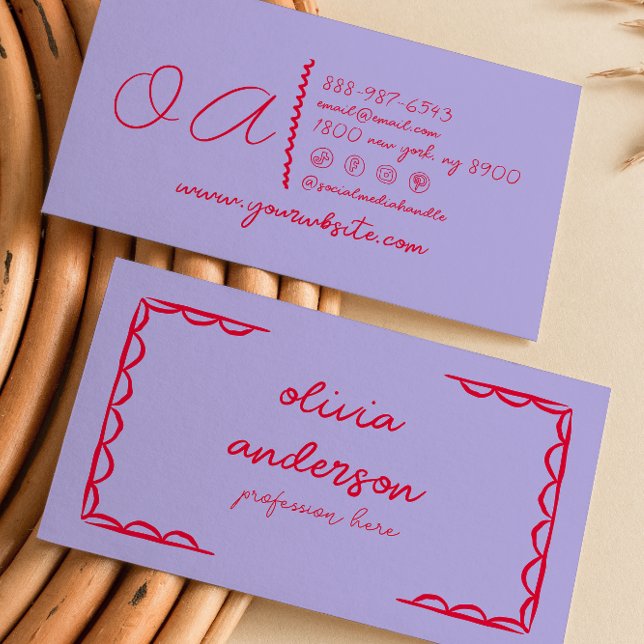 O A
888-987-6543
email@email.com
1800 new york, ny 8900
@socialmediahandle
www.yourwbsite.com
olivia
anderson
profession here